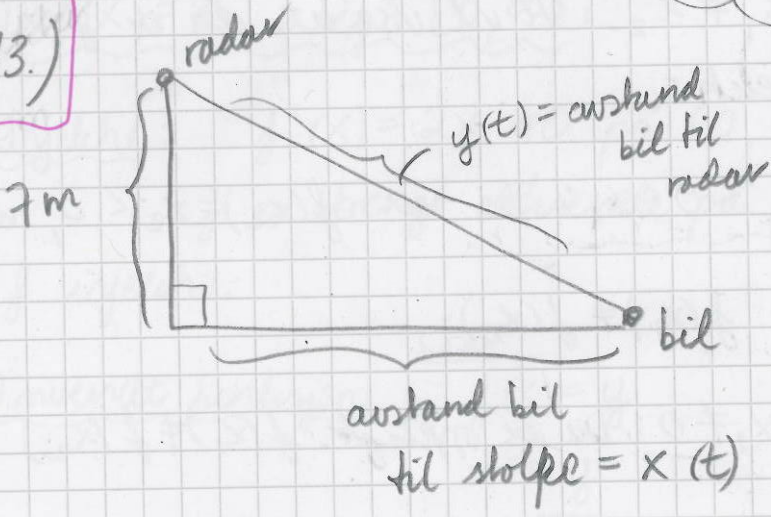 3.)
radar
y(t) = avstand
bil til
radar
7 m
bil
avstand bil
til stolpe = x (t)